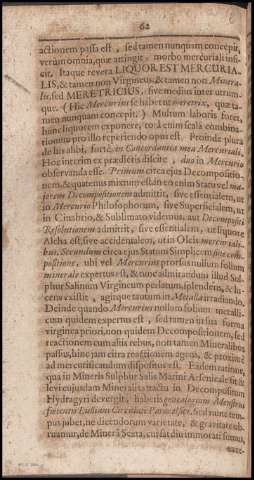 62
actionem passa est, sed tamen nunquam concepit,
verùm omnia, quæ attingit, morbo mercuriali infi-
cit. Itaque revera LIQUOR EST MERCURIA-
LIS, & tamen non Virgineus, & tamen non Minera-
lis, sed MERETRICIUS, sive medius inter utrum-
que. (Hic Mercurius se habet ut meretrix, quæ ta-
men nunquam concepit.) Multum laboris foret,
hunc liquorem exponere, totâ enim scalâ combina-
tionum pro illo repetendo opus est. Proinde plura
de his alibi, fortè in Concordantia mea Mercuriali.
Hoc interim ex prædictis discite, duo in Mercurio
observanda esse. Primum circa ejus Decompositio-
nem, & quatenus
jorem Decompositionem admittit, sive essentialem, ut
in Mercurio Philosophorum, sive superficialem, ut
in Cinabrio, & Sublimato videmus, aut Decompositi
Resolutionem admittit, sive essentialem, ut liquore
Alcha est, sive accidentalem, ut in Oleis mercuriali-
bus. Secundum circa ejus Statum Simplicem sive com-
positione, ubi vel Mercurius prorsus nullum solium
minerale expertus est, & tunc admirandum illud Sul-
phur Salinum Virgineum perlarum, splendens, & lu-
cens existit, aginque tantum in Metalla irradiando.
Deinde quando Mercurius nullum solium metalli-
cum quidem expertus est, sed tamen in sua forma
virginea priori, non quidem Decompositionem, sed
reactionem cum aliis rebus, non tamen Mineralibus
passus, hinc jam citra reactionem agens, & proxime
ad mercurificandum dispositus est. Eadem ratione,
qua in Mineris Sulphur Salis Marini Arsenicale sit &
levi ejusdam Mineralis tacta in Decompositum
Hydragyri devergit, habetis genealogiam Menstrui
fœtentis Lulliani Circulati Paracelsici, sed nunc tem-
pus jubet, ne dictorum varietate, & gravitate ob-
ruamur, de Minerâ Sexta, cui sat diu immorati sumus,